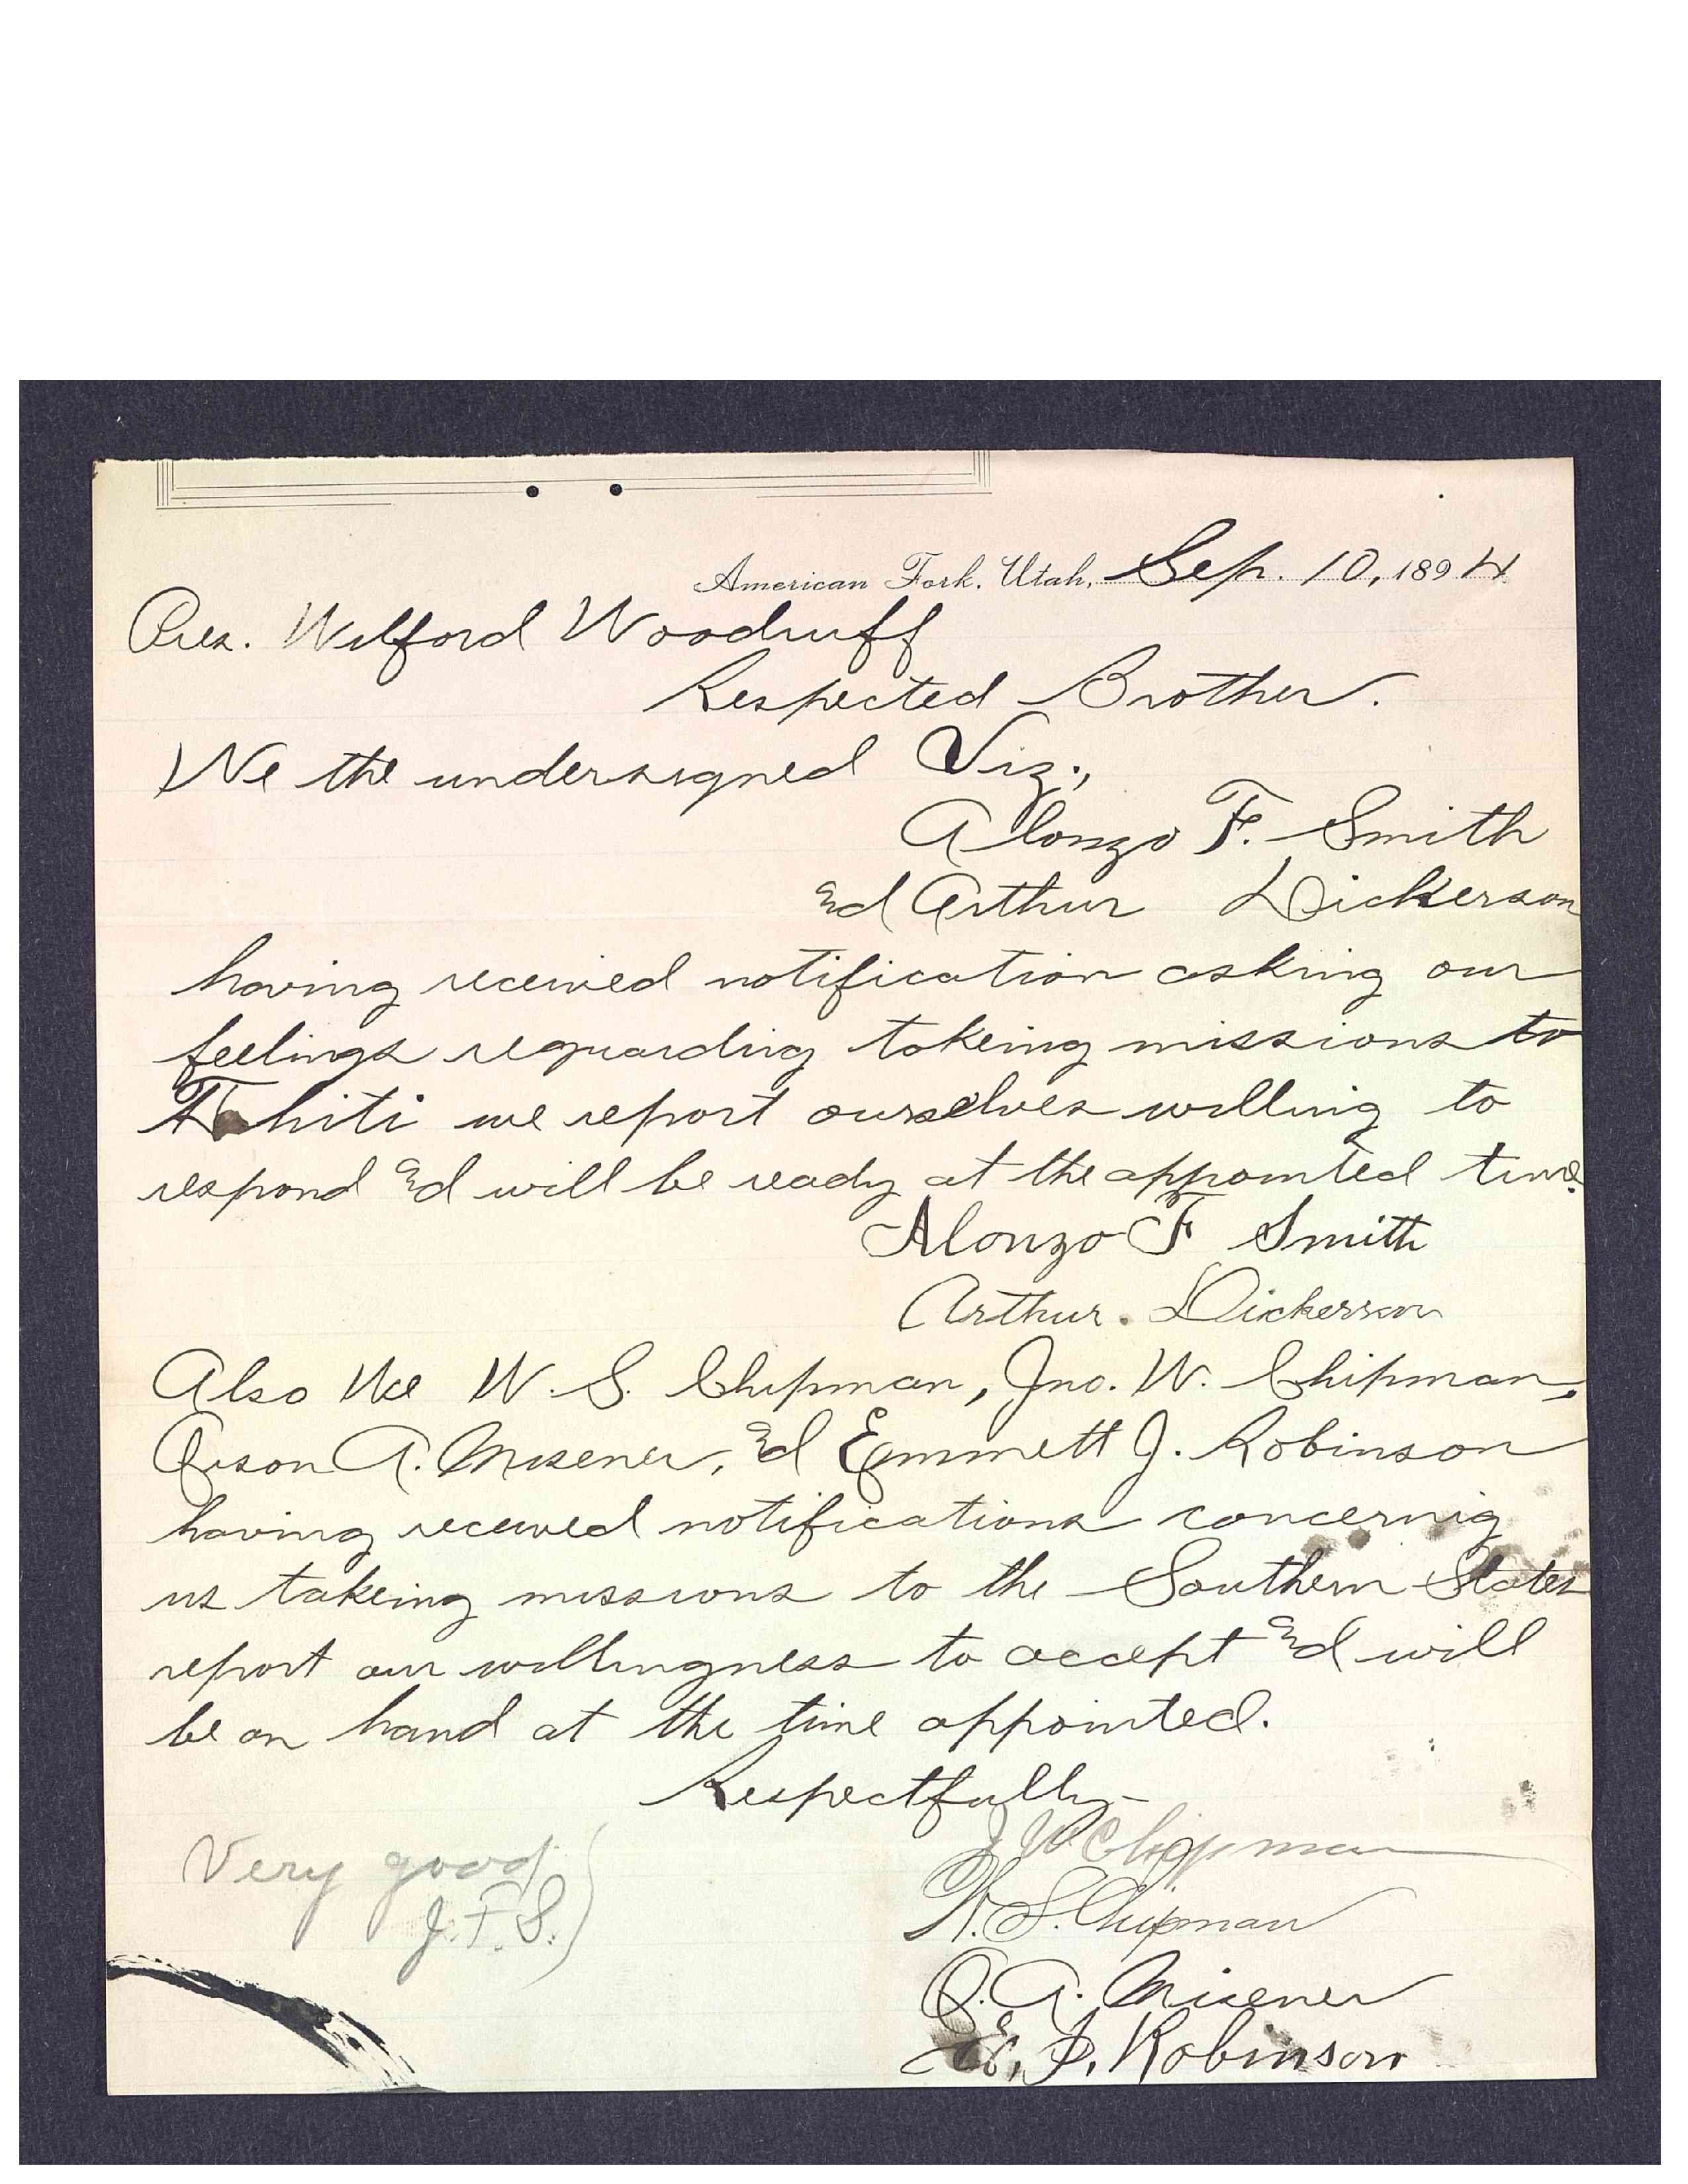 American Fork, Utah, Sep. 10, 1894
Pres. Wilford Woodruff
Respected Brother.
We the undersigned Viz.,
Alonzo F. Smith
and Arthur Dickerson
having received notification asking our
feelings reguarding takeing missions to
Tahiti we report ourselves willing to
respond and will be ready at the appointed time.
Alonzo F Smith
Arthur. Dickerson
Also We W. S. Chipman, Jno. W. Chipman,
Orson A. Misener, and Emmett J. Robinson
having received notifications concernig
us takeing missions to the Southern States
report our willingness to accept and will
be on hand at the time appointed.
Respectfully
J W Chipman
W. S. Chipman
O. A. Misener
E. J. Robinson
Very good
J. F. S.)